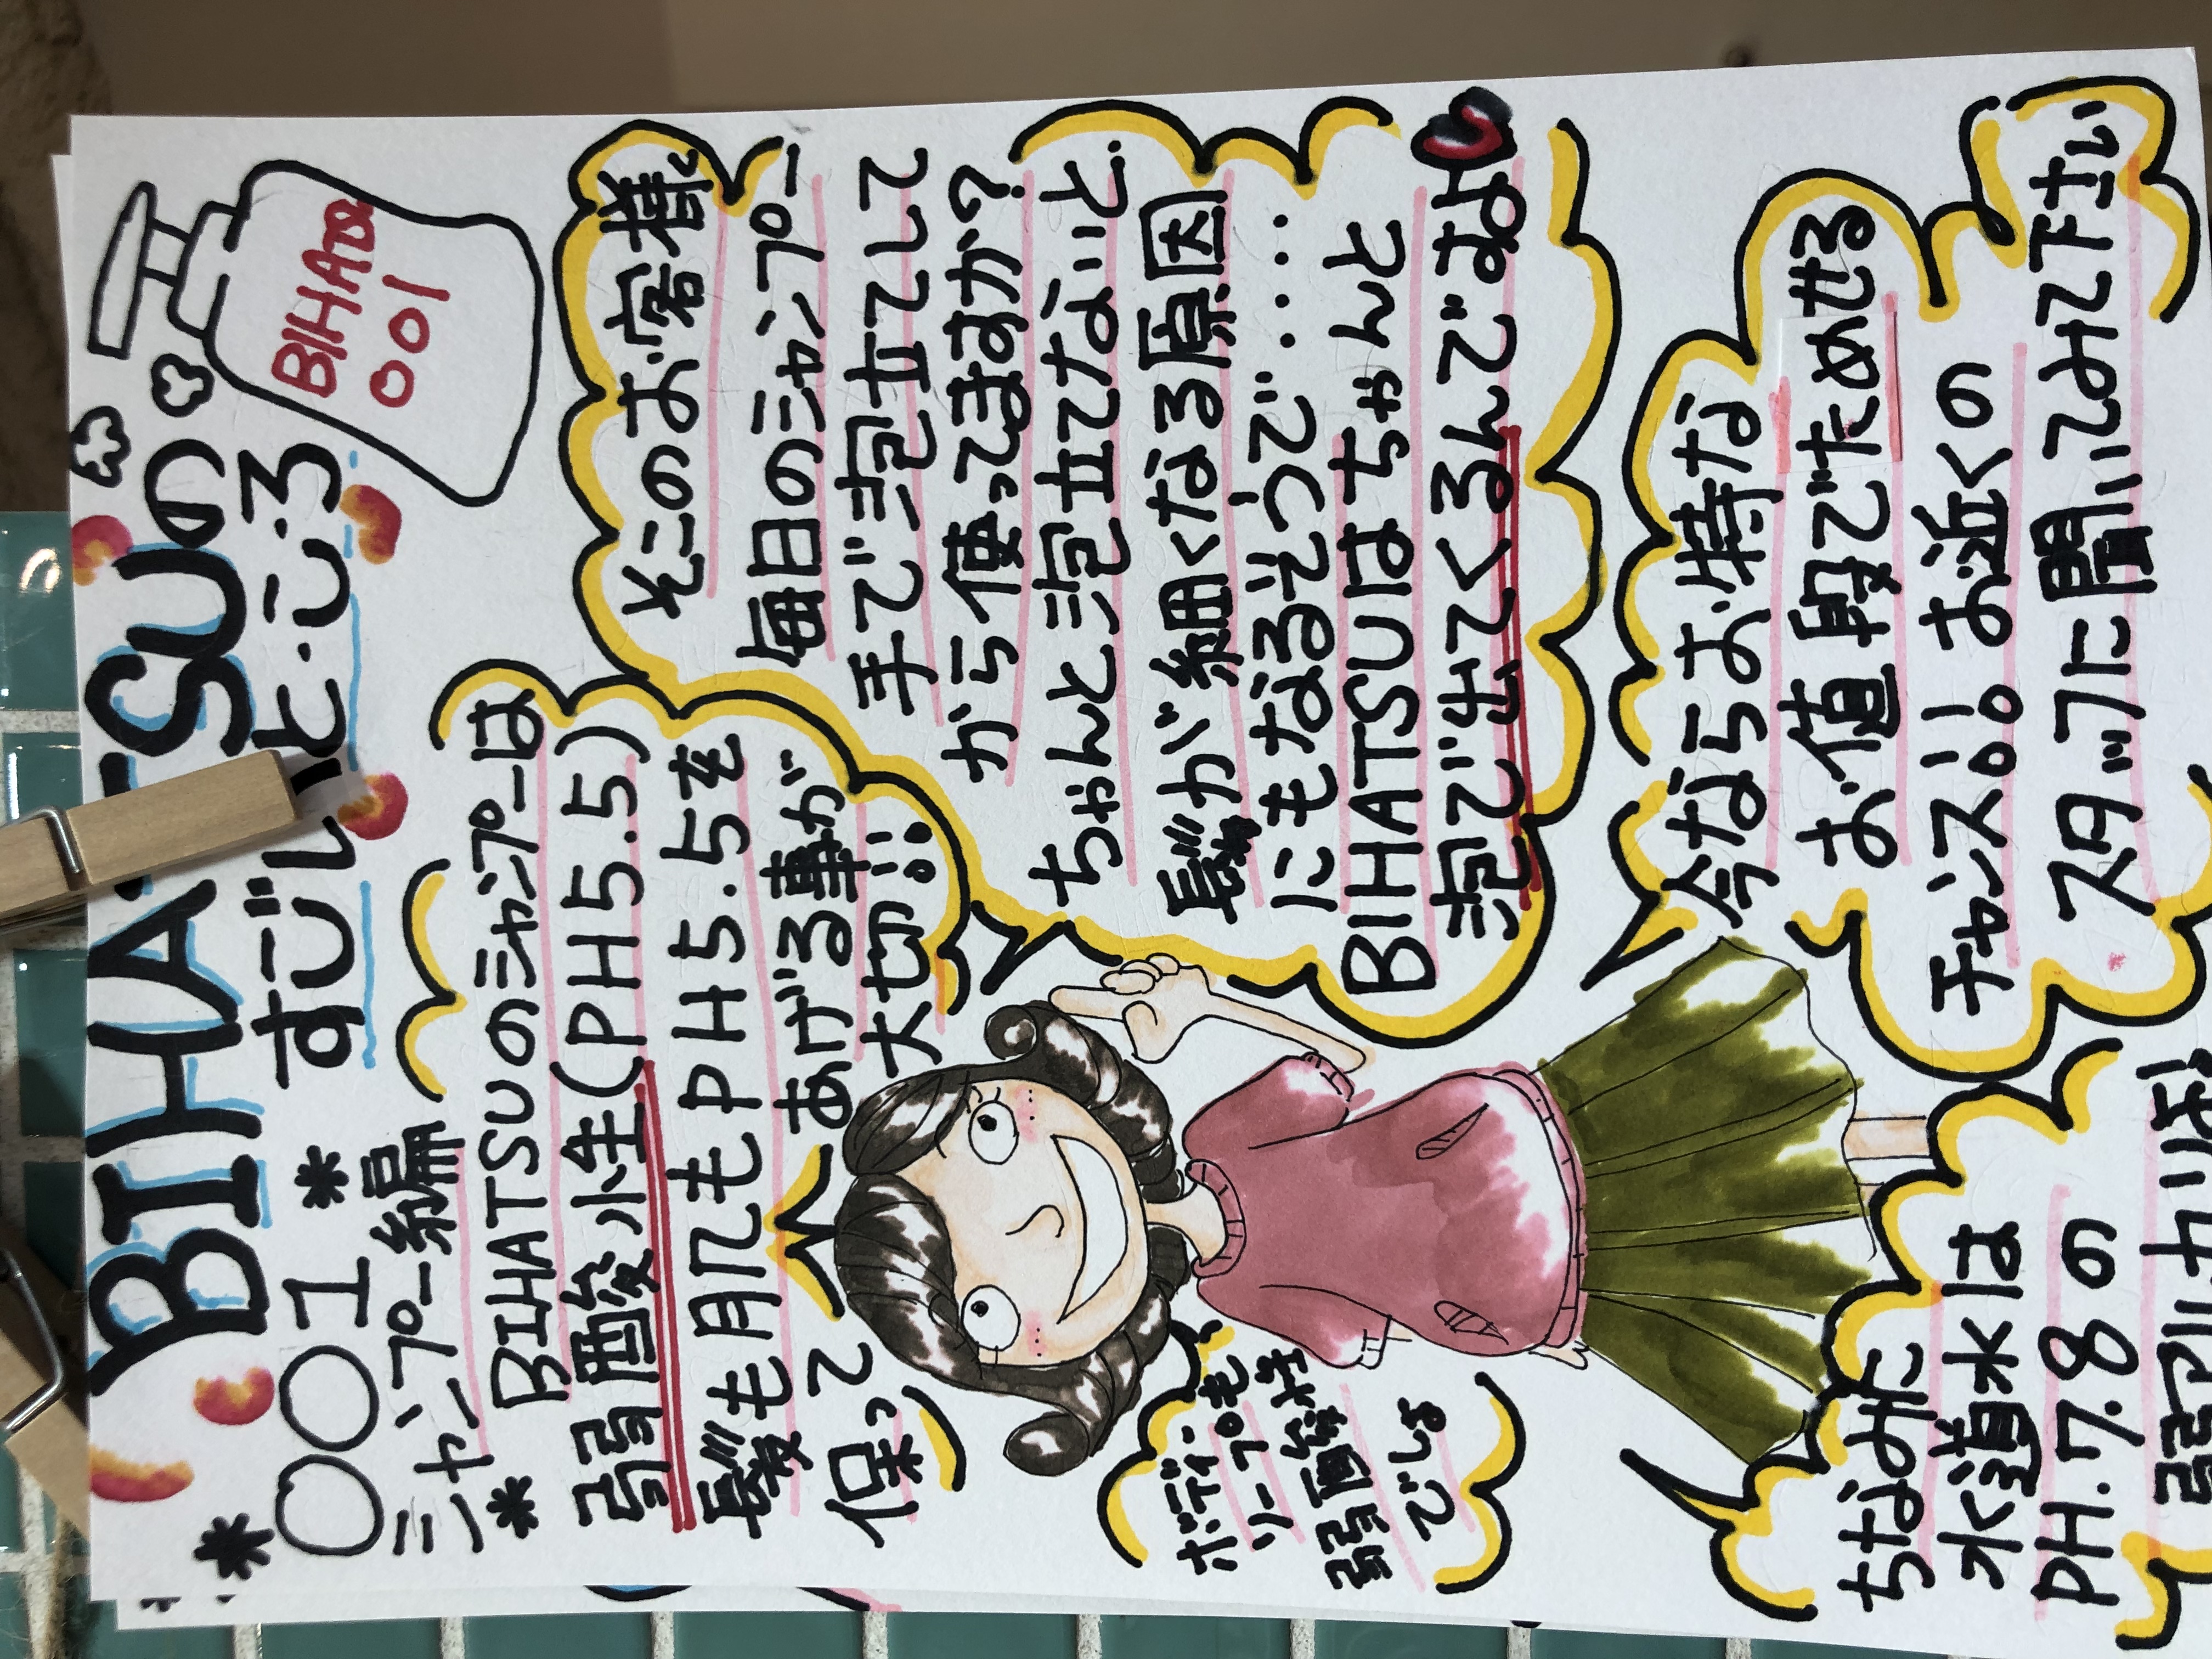 BIHATSUの
すごいところ
BIHATSU
001
001
シャンプー編
BIHATSUのシャンプーは
弱酸性(PH5.5)
髪も肌もPH5.5を
保って
あげる事が
大切!!
そこのお客様
毎日のシャンプー
手で泡立てして
から使ってますか?
ちゃんと泡立てないと
髪が細くなる原因
にもなるそうで....
BIHATSUはちゃんと
泡で出てくるんでなよ
ボディ
ソープも
弱酸性
でしょ
今ならお得な
お値段でためせる
チャンス!!。お近くの
スタッフに聞いてみて下さい
ちなみに
水道水は
PH.7.8の
弱アルカリ